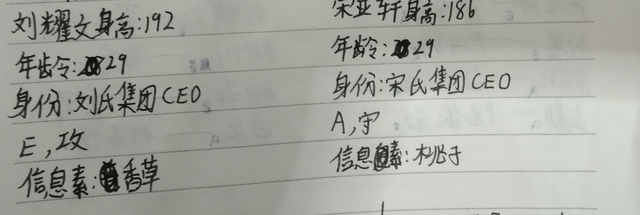 刘耀文身高:192
年龄:29
身份:刘氏集团CEO
E,攻
信息素:香草
宋亚轩身高:186
年龄:29
身份:宋氏集团CEO
A,宇
信息素:桃子